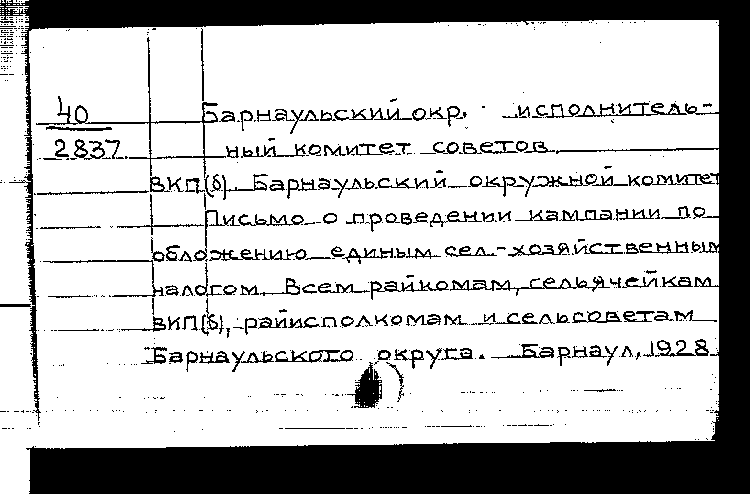 40
Барнаульский окр. исполнитель-
2837
ный комитет советов.
ВКП(б). Барнаульский окружной комитет
Письмо о проведении кампании по
обложению единым сел.-хозяйственным
налогом. Всем райкомам, сельячейкам
ВКП(б), райисполкомам и сельсоветам
Барнаульского округа. Барнаул, 1928